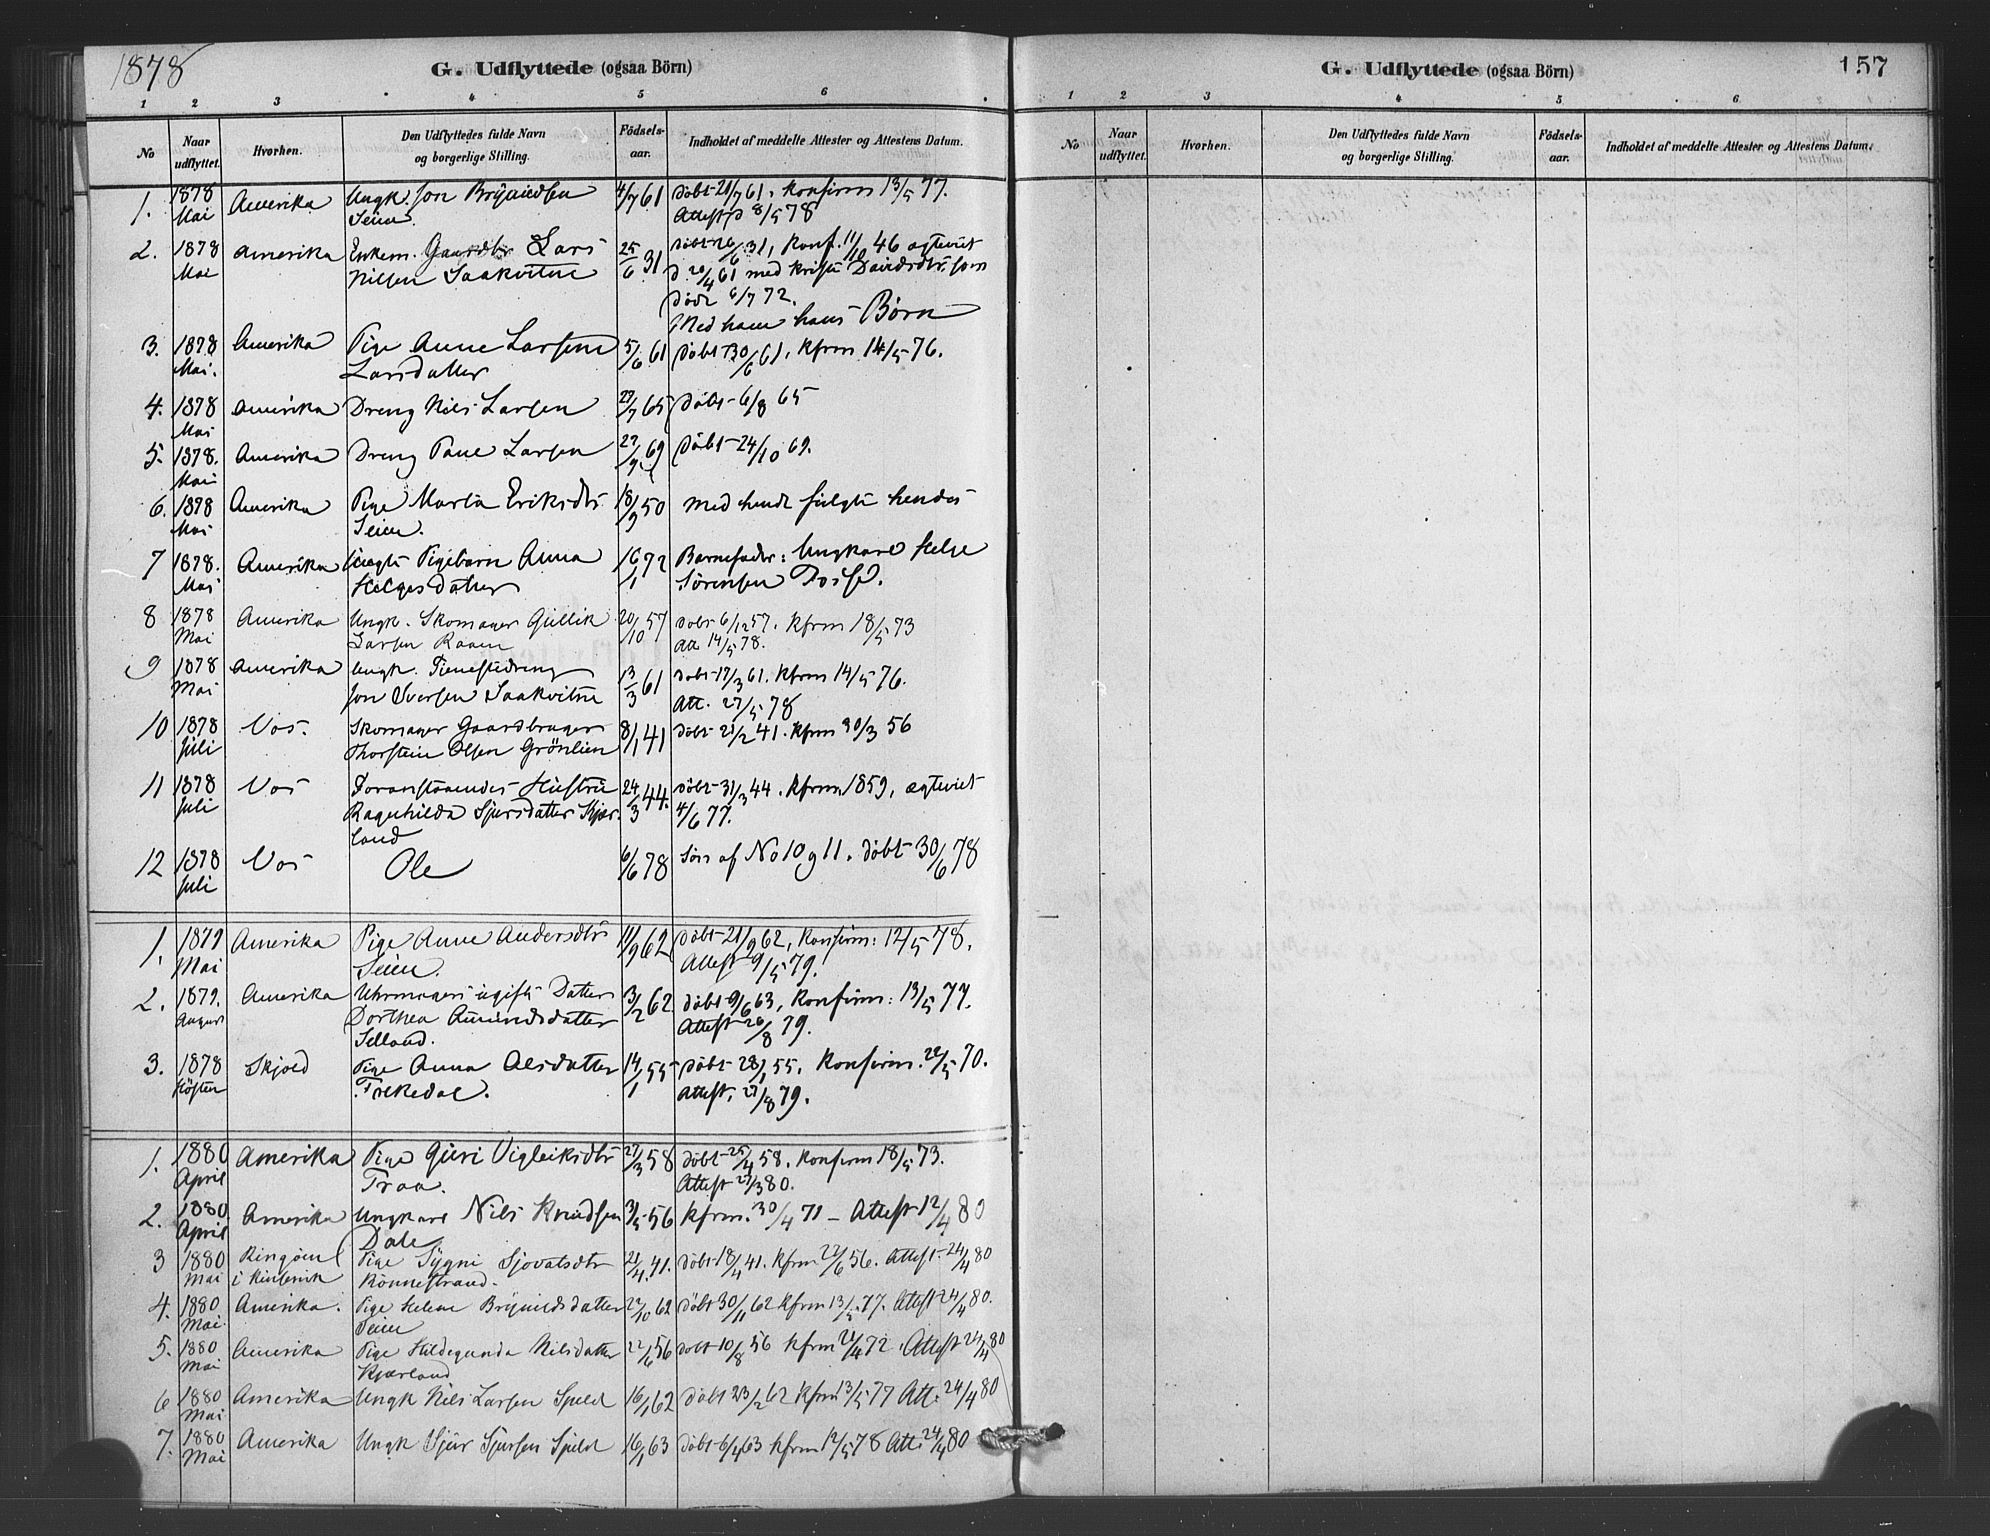 1878
G. Udflyttede (ogsaa Börn)
1 2 3 4 5 6
No
Naar udflyttet.
Hvorhen.
Den Udflyttedes fulde Navn og borgerlige Stilling.
Födsels-aar.
Indholdet af meddelte Attester og Attestens Datum.
1. 1878 Amerika Ungk. Jon Brynildsen 4/7 61 Döbt 21/7 61. Konfirm 13/5 77.
Mai Seim Attest 8/5 78
2. 1878 Amerika Enkem. Gaardbr Lars 25/6 31 Döbt 26/6 31, Konf. 11/10 46 egteviet
Mai Nilsen Saakvitne d 20/4 61 med Kristi Davidsdtr. som
döde 6/7 72.
Med ham hans Børn
3. 1878 Amerika Pige Anne Larsine 5/6 61 Döbt 30/6 61. Kfrm 14/5 76.
Mai. Larsdatter
4. 1878 Amerika Dreng Nils Larsen 27/7 65 Döbt 6/8 65
Mai
5. 1878. Amerika Dreng Paul Larsen 27/9 69 Döbt 24/10 69.
Mai
6. 1878 Amerika Pige Marta Eriksdtr 18/9 50 Med hende fulgte hendes
Mai Seim.
7 1878. Amerika Uegte Pigebarn Anna 16/1 72 Barnefader: Ungkarl Helge
Mai Helgesdatter Sörensen
8 1878 Amerika Ungk. Skomager Gullik 20/10 57 Döbt 6/12 57. Kfrm 18/5 73
Mai Larsen Raaen Att 14/5 78.
9 1878 Amerika Ungk. Tjenestedreng 13/3 61 Döbt 17/3 61. Kfrm 14/5 76.
Mai Jon Iversen Saakvitne Att. 27/5 78
10 1878 Vos. Skomager Gaardbruger 8/1 41 Döbt 21/2 41. Kfrm 30/3 56
Juli Thorstein Olsen Grönlien
11 1878 Vos Foranstaaendes Hustru 24/3 44. Döbt 31/3 44. Kfrm 1859, egteviet
Juli Ragnhilda Sjursdatter Kjær- 4/6 77.
land
12 1878 Vos Ole 6/6 78 Sön af No 10 og 11. Döbt 30/6 78
Juli
1. 1879 Amerika Pige Anne Andersdtr 11/9 62 Döbt 21/9 62, Konfirm: 12/5 78.
Mai Seim. Attest 9/5 79.
2. 1879. Amerika Uhrmagers ugifte Datter 3/2 62. Döbt 9/6 63, Konfirm: 13/5 77.
August Dorthea Amundsdatter Attest 26/8 79.
Selland.
3. 1878 Skjold Pige Anna Olsdatter 14/1 55 Döbt 28/1 55. Konfirm. 22/5 70.
Hösten Trekedal. Attest. 27/8 79.
1. 1880 Amerika Pige Guri Vigleiksdtr 27/3 58 Döbt 25/4 58. Konfirm 18/5 73.
April Traa. Attest 27/3 80.
2. 1880 Amerika Ungkarl Nils Knudsen 3/5 56 Kfrm. 30/4 71 – Attest 12/4 80
April Dale
3 1880 Pige Sygni Sjovatsdtr 21/4 41. Döbt 18/4 41. Kfrm 22/6 56. Attest. 24/4 80
Mai Rönnestrand.
4. 1880 Amerika. Pige Helene Brynildsdatter 22/10 62 Döbt 30/11 62 Kfrm 13/5 77. Attest 24/4 80.
Mai. Seim
5. 1880 Amerika Pige Hildegunda Nilsdatter 22/6 56 Döbt 10/8 56 Kfrm 21/4 72. Attest 24/4 80
Mai Kjærland
6 1880 Amerika Ungk Nils Larsen Spilde 16/1 62 Döbt 23/2 62 Kfrm 13/5 77 Att: 24/4 80
Mai
7. 1880 Amerika Ungk Sjur Sjursen Spilde 16/1 63 Döbt 6/4 63 Kfrm 12/5 78 Att. 24/4 80
Mai
G. Udflyttede (ogsaa Börn)
157
1 2 3 4 5 6
No
Naar udflyttet.
Hvorhen.
Den Udflyttedes fulde Navn og borgerlige Stilling.
Födsels-aar.
Indholdet af meddelte Attester og Attestens Datum.